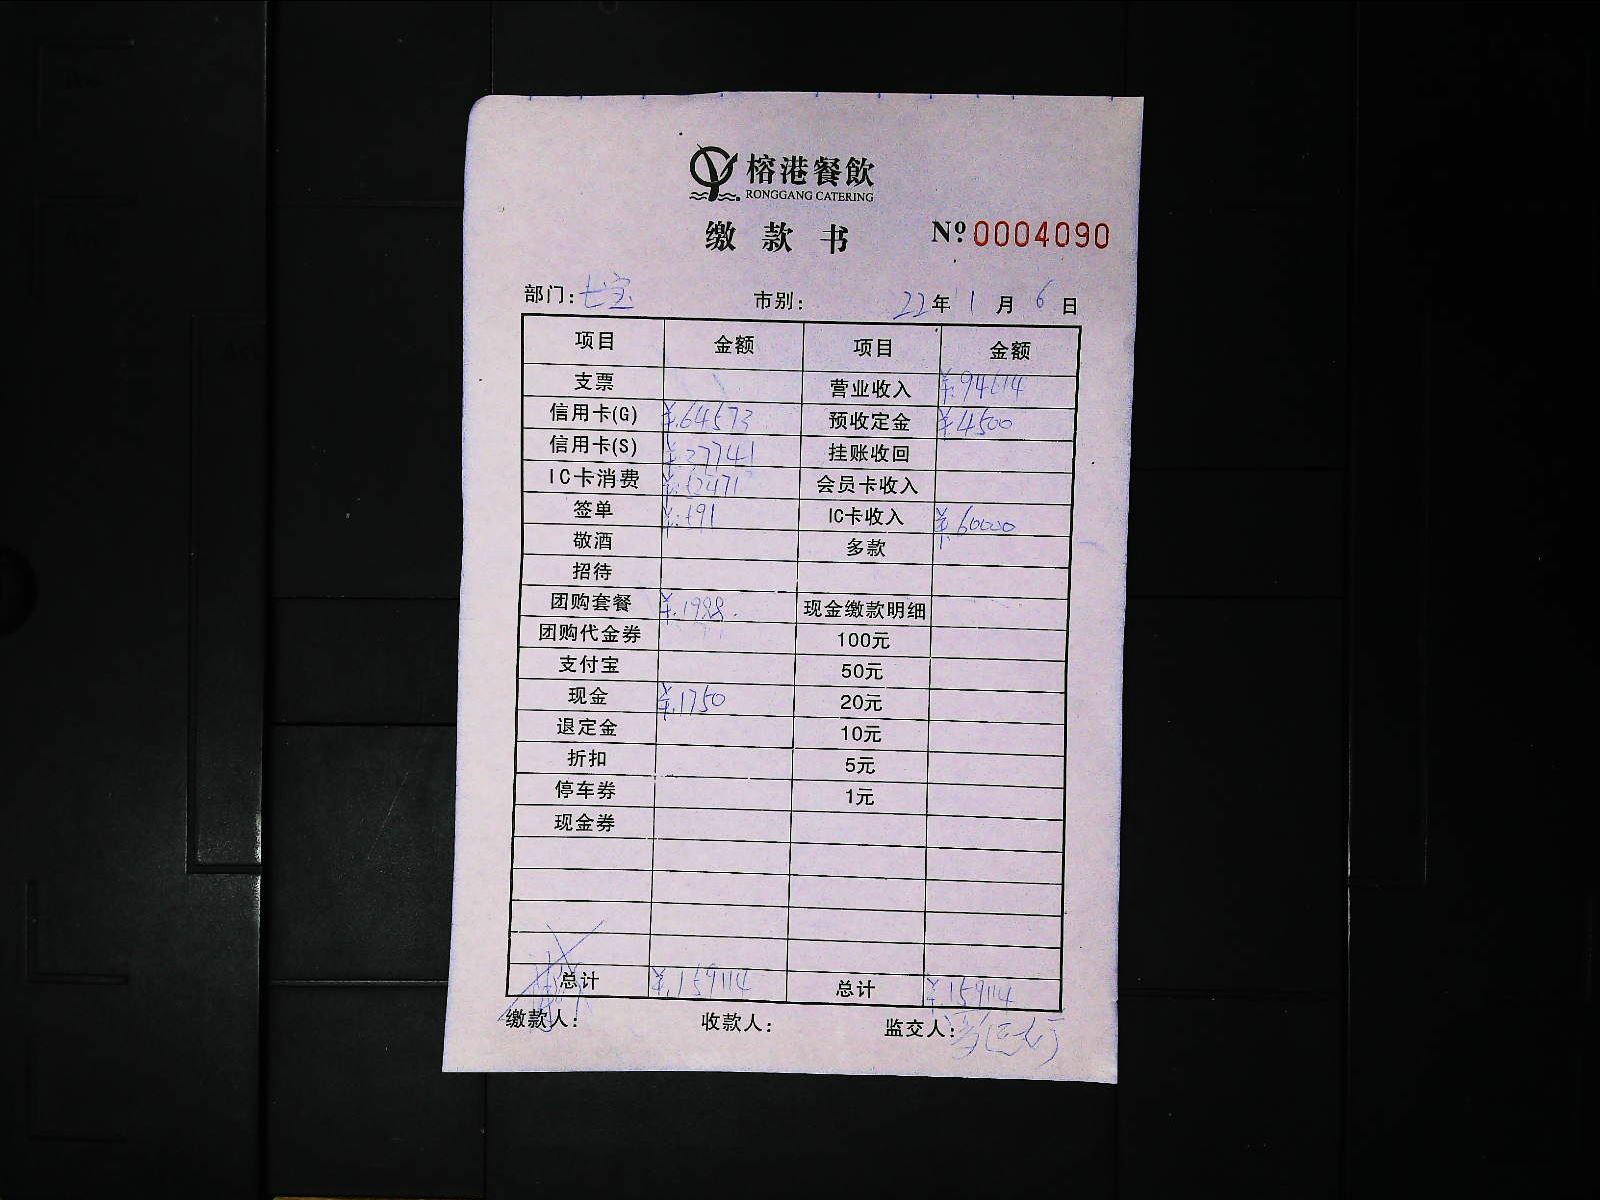 榕港餐飲
RONGGANG CATERING
缴款书 Nº 0004090
部门：七宝 市别： 22年1月6日
项目 金额 项目 金额
支票 营业收入 ¥:94614
信用卡(G) ¥.64573 预收定金 ¥4500
信用卡(S) ¥.37741 挂账收回
IC卡消费 ¥:52471 会员卡收入
签单 ¥:591 IC卡收入 ¥60000
敬酒 多款
招待
团购套餐 ¥.1988. 现金缴款明细
团购代金券 100元
支付宝 50元
现金 ¥.1750 20元
退定金 10元
折扣 5元
停车券 1元
现金券
总计 ¥.159114 总计 ¥.159114
缴款人： 收款人： 监交人：